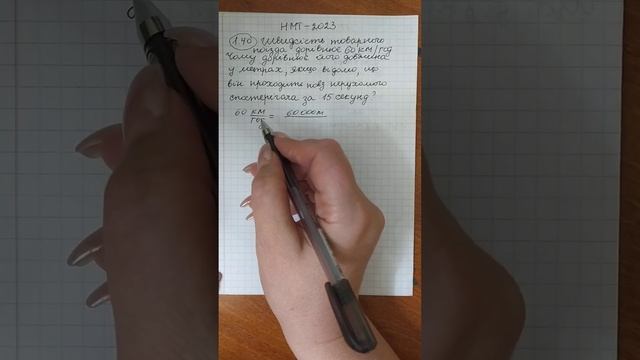 НМТ-2023
1.40 Швидкість товарного
поїзда дорівнює 60 км/год
Чому дорівнює його довжина
у метрах, якщо відомо, що
він проходить повз нерухомого
спостерігача за 15 секунд?
60 км/год = 60 000м